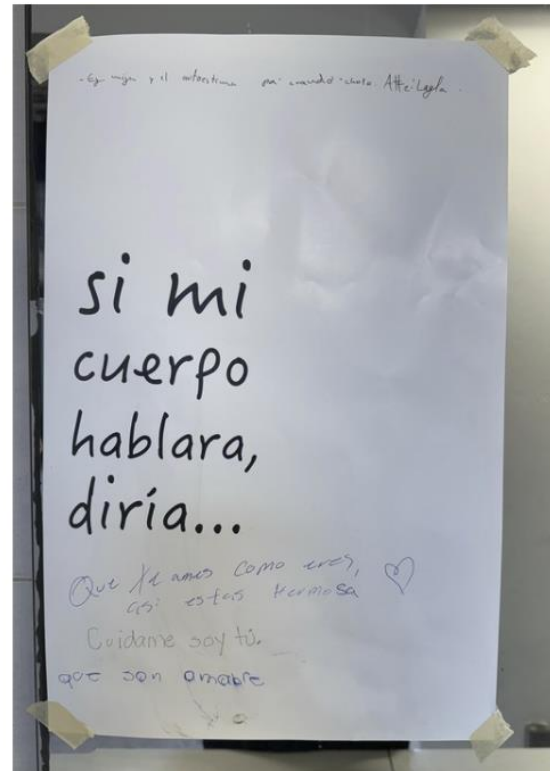 y el autoestima Atte: Leyla.
si mi
cuerpo
hablara,
diría...
Que te ames como eres,
así estas Hermosa
Cuidame soy tú.
que son amable